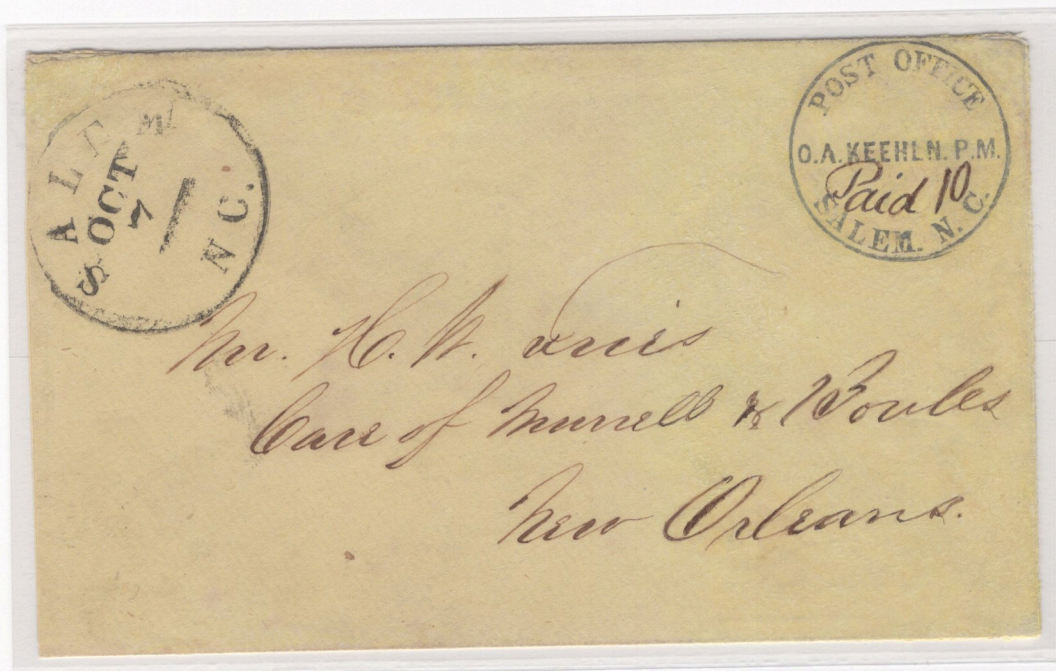 SALEM
OCT
7
N C.
POST OFFICE
O.A. KEEHLN. P.M.
Paid 10
SALEM. N. C.
Mr. H. W.
Care of Murrell & Boules
New Orleans.